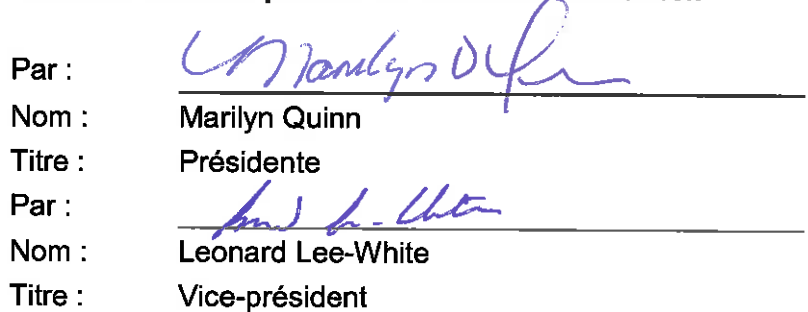 Par : Marilyn Quinn
Nom : Marilyn Quinn
Titre : Présidente
Par :
Nom : Leonard Lee-White
Titre : Vice-président